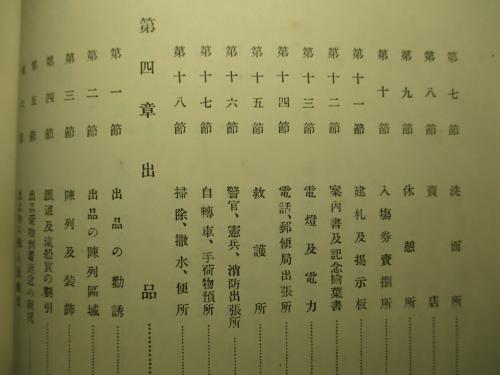 第七節 洗面所
第八節 賣店
第九節 休憩所
第十節 入場券賣捌所
第十一節 建札及揭示板
第十二節 案內書及記念繪葉書
第十三節 電燈及電力
第十四節 電話、郵便局出張所
第十五節 救護所
第十六節 警官、憲兵、消防出張所
第十七節 自轉車、手荷物預所
第十八節 掃除、撒水、便所
第四章 出品
第一節 出品の勸誘
第二節 出品の陳列區域
第三節 陳列及裝飾
第四節 鐵道及汽船賃の割引
第五節 出品荷物到著